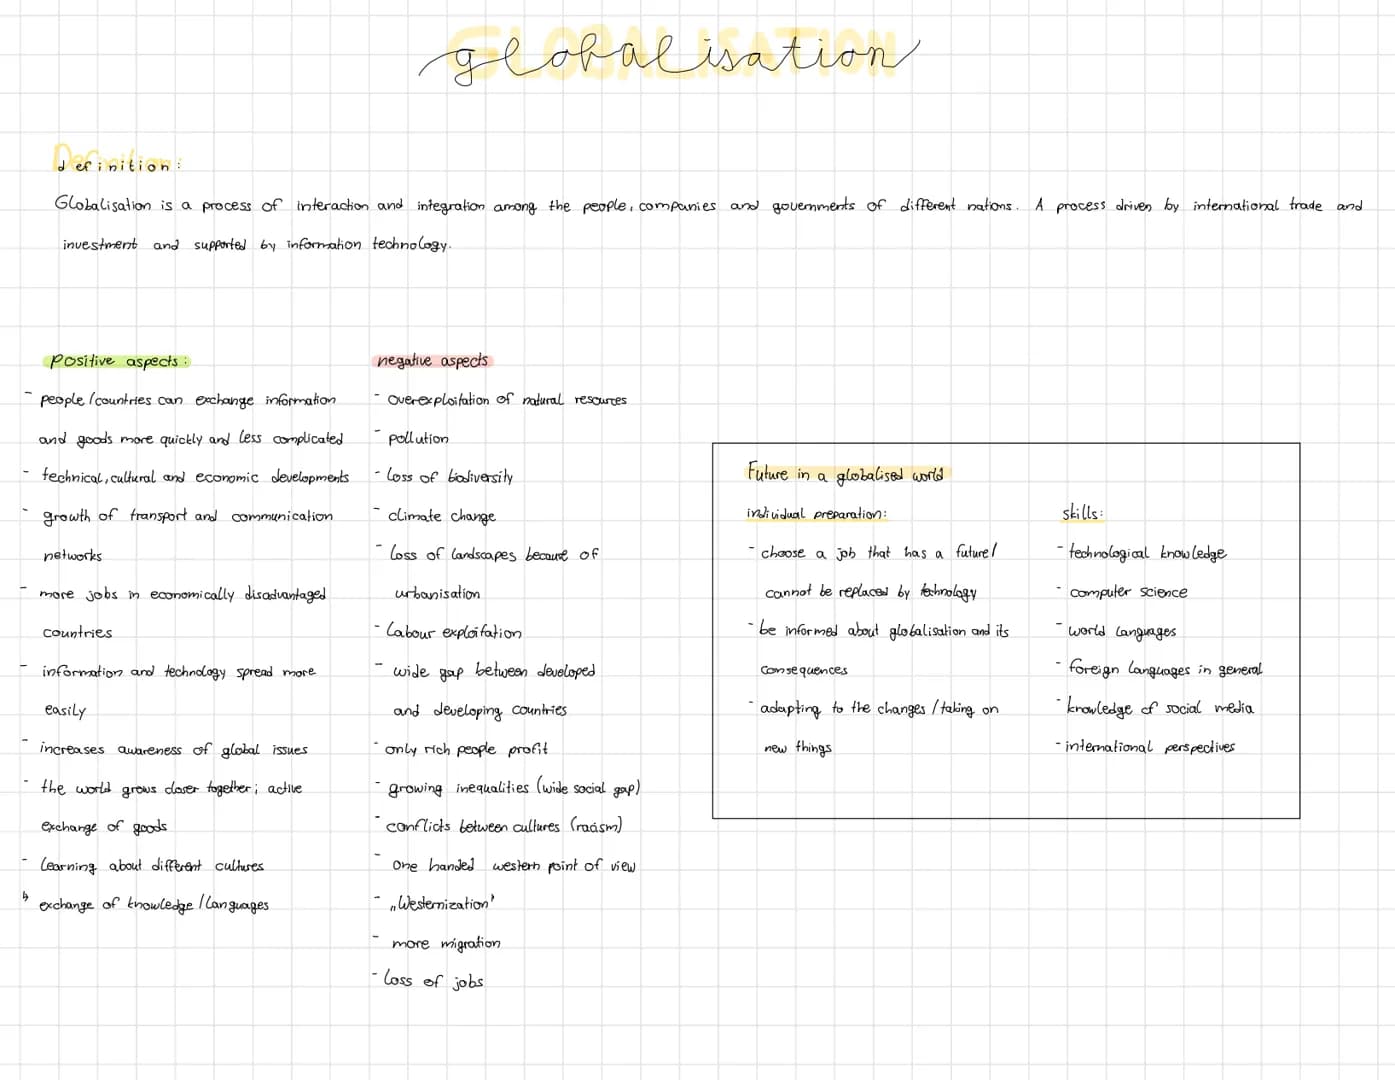 globalisation
definition:
Globalisation is a process of interaction and integration among the people, companies and governments of different nations. A process driven by international trade and
investment and supported by information technology.
Positive aspects:
- people/countries can exchange information
and goods more quickly and less complicated
- technical, cultural and economic developments
- growth of transport and communication
networks
- more jobs in economically disadvantaged
countries
- information and technology spread more
easily
- increases awareness of global issues
- the world grows closer together; active
exchange of goods
- learning about different cultures
↳ exchange of knowledge/languages
negative aspects
- overexploitation of natural resources
- pollution
- loss of biodiversity
- climate change
- loss of landscapes because of
urbanisation
- labour exploitation
- wide gap between developed
and developing countries
- only rich people profit
- growing inequalities (wide social gap)
- conflicts between cultures (racism)
- one handed western point of view
- „Westernization'
- more migration
- loss of jobs
Future in a globalised world
individual preparation:
- choose a job that has a future/
cannot be replaced by technology
- be informed about globalisation and its
consequences
- adapting to the changes/taking on
new things
skills:
- technological knowledge
- computer science
- world languages
- foreign languages in general
- knowledge of social media
- international perspectives